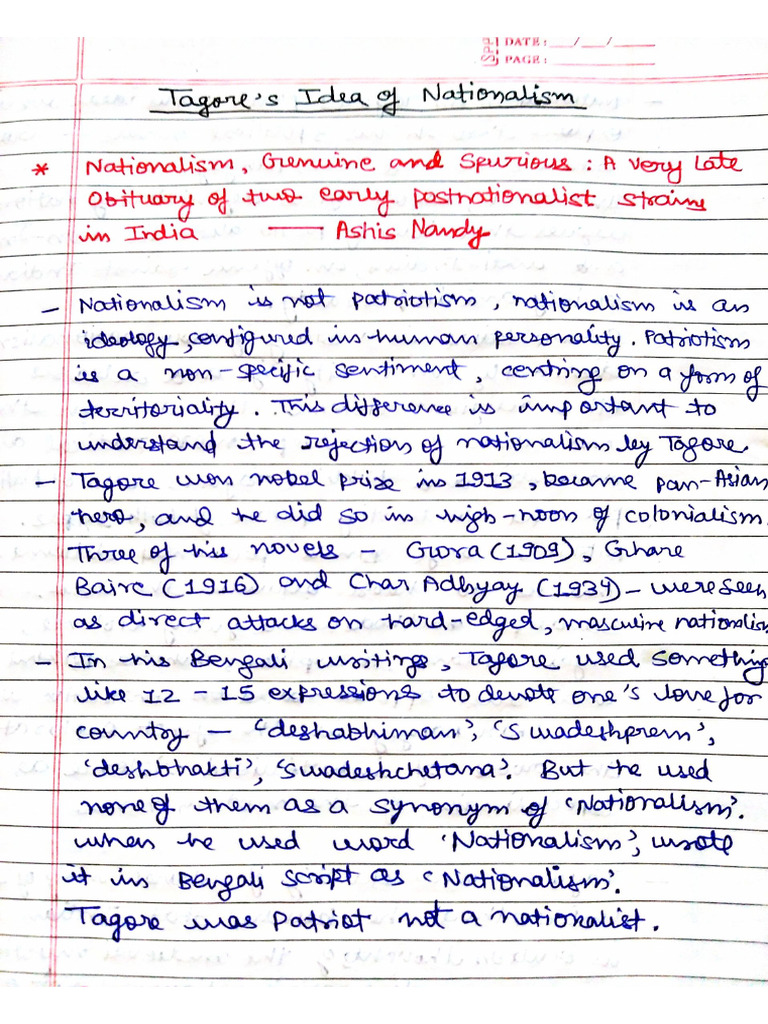 Spa
DATE: __/__/____
PAGE: ________
Tagore's Idea of Nationalism
* Nationalism, Genuine and Spurious : A Very Late
Obituary of two early postnationalist strains
in India —— Ashis Nandy
- Nationalism is not patriotism, nationalism is an
ideology, configured in human personality. Patriotism
is a non-specific sentiment, centring on a form of
territoriality. This difference is important to
understand the rejection of nationalism by Tagore
- Tagore won nobel prize in 1913, became pan-Asian
hero, and he did so in high-noon of colonialism.
Three of his novels - Gora (1909), Ghare
Baire (1916) and Char Adhyay (1934) - were seen
as direct attacks on hard-edged, masculine nationalism
- In his Bengali writings, Tagore used something
like 12 - 15 expressions to denote one's love for
country - 'deshabhiman', 'Swadeshprem',
'deshbhakti', 'Swadeshchetana'. But he used
none of them as a synonym of 'Nationalism'.
when he used word 'Nationalism', wrote
it in Bengali script as 'Nationalism'.
Tagore was Patriot not a nationalist.